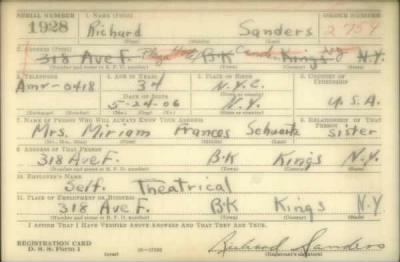 SERIAL NUMBER 1. NAME (Print) ORDER NUMBER
1928 Richard Sanders 2759
2. ADDRESS (Print)
318 Ave F. B-K Kings N.Y.
(Number and street or R. F. D. number) (Town) (County) (State)
3. TELEPHONE 4. AGE IN YEARS 5. PLACE OF BIRTH 6. COUNTRY OF CITIZENSHIP
34 N.Y.C.
0418 DATE OF BIRTH (Town or county)
5-24-06 N.Y. U.S.A.
(Exchange) (Number) (Mo.) (Day) (Yr.) (State or country)
7. NAME OF PERSON WHO WILL ALWAYS KNOW YOUR ADDRESS 8. RELATIONSHIP OF THAT PERSON
Mrs. Miriam Frances Schwartz sister
(Mr., Mrs., Miss) (First) (Middle) (Last)
9. ADDRESS OF THAT PERSON
318 Ave F. B-K Kings N.Y.
(Number and street or R. F. D. number) (Town) (County) (State)
10. EMPLOYER'S NAME
Self. Theatrical
11. PLACE OF EMPLOYMENT OR BUSINESS
318 Ave F. B-K Kings N.Y.
(Number and street or R. F. D. number) (Town) (County) (State)
I AFFIRM THAT I HAVE VERIFIED ABOVE ANSWERS AND THAT THEY ARE TRUE.
REGISTRATION CARD
D. S. S. Form 1 Richard Sanders
(over) (Registrant's signature)